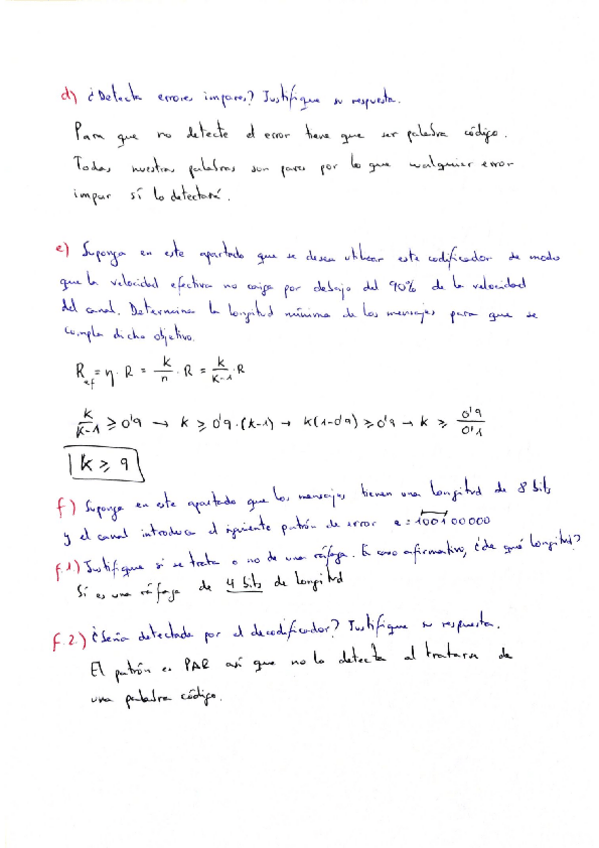 d) ¿Detecta errores impares? Justifique su respuesta.
Para que no detecte el error tiene que ser palabra código.
Todas nuestras palabras son pares por lo que cualquier error
impar sí lo detectará.
e) Suponga en este apartado que se desea utilizar este codificador de modo
que la velocidad efectiva no caiga por debajo del 90% de la velocidad
del canal. Determine la longitud mínima de los mensajes para que se
cumpla dicho objetivo.
R_ef = η · R = k/n · R = k/(k-1) · R
k/(k-1) ≥ 0'9 → k ≥ 0'9 · (k-1) → k(1-0'9) ≥ 0'9 → k ≥ 0'9/0'1
k ≥ 9
f) Suponga en este apartado que los mensajes tienen una longitud de 8 bits
y el canal introduce el siguiente patrón de error e = 100100000
f.1) Justifique si se trata o no de una ráfaga. En caso afirmativo, ¿de qué longitud?
Sí es una ráfaga de 4 bits de longitud
f.2.) ¿Sería detectada por el decodificador? Justifique su respuesta.
El patrón es PAR así que no lo detecta al tratarse de
una palabra código.